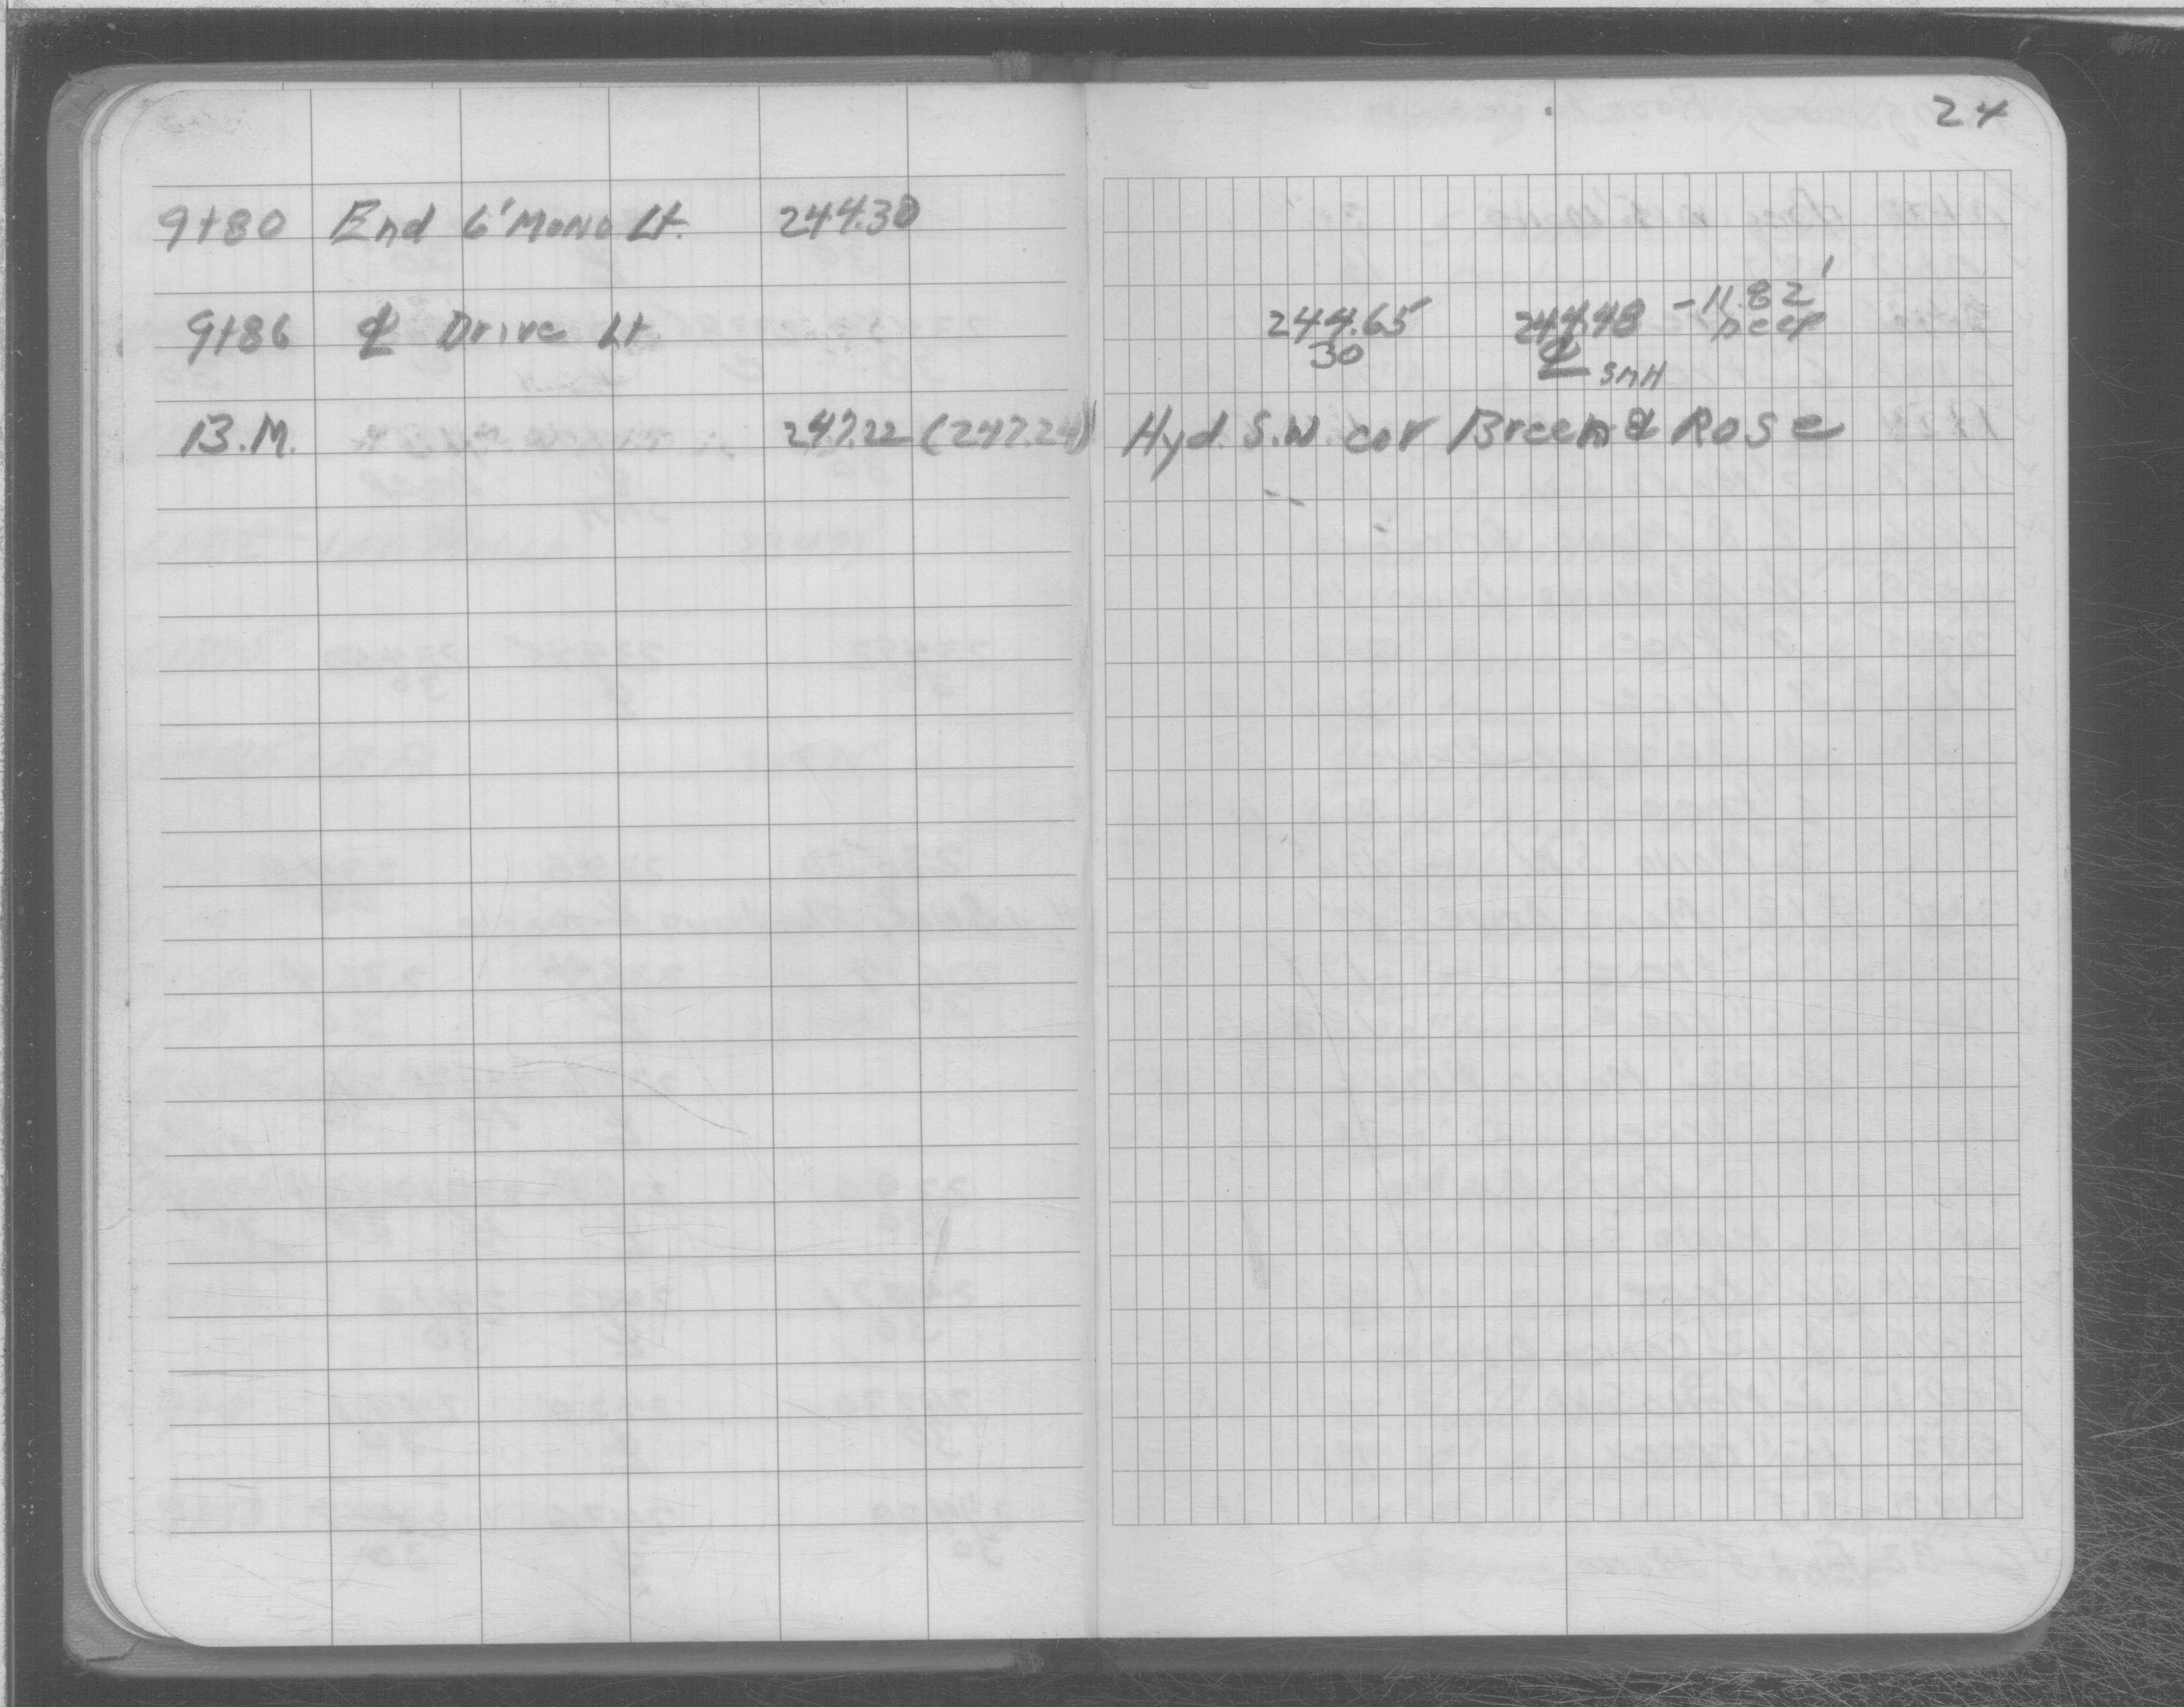 24
9+80 End 6' MONO Lt. 244.30
9+86 ℄ Drive Lt 244.65 244.48 -11.82'
30 ℄ SMH Deep
B.M. 247.22 (247.24) Hyd. S.W. cor Breen & Rose